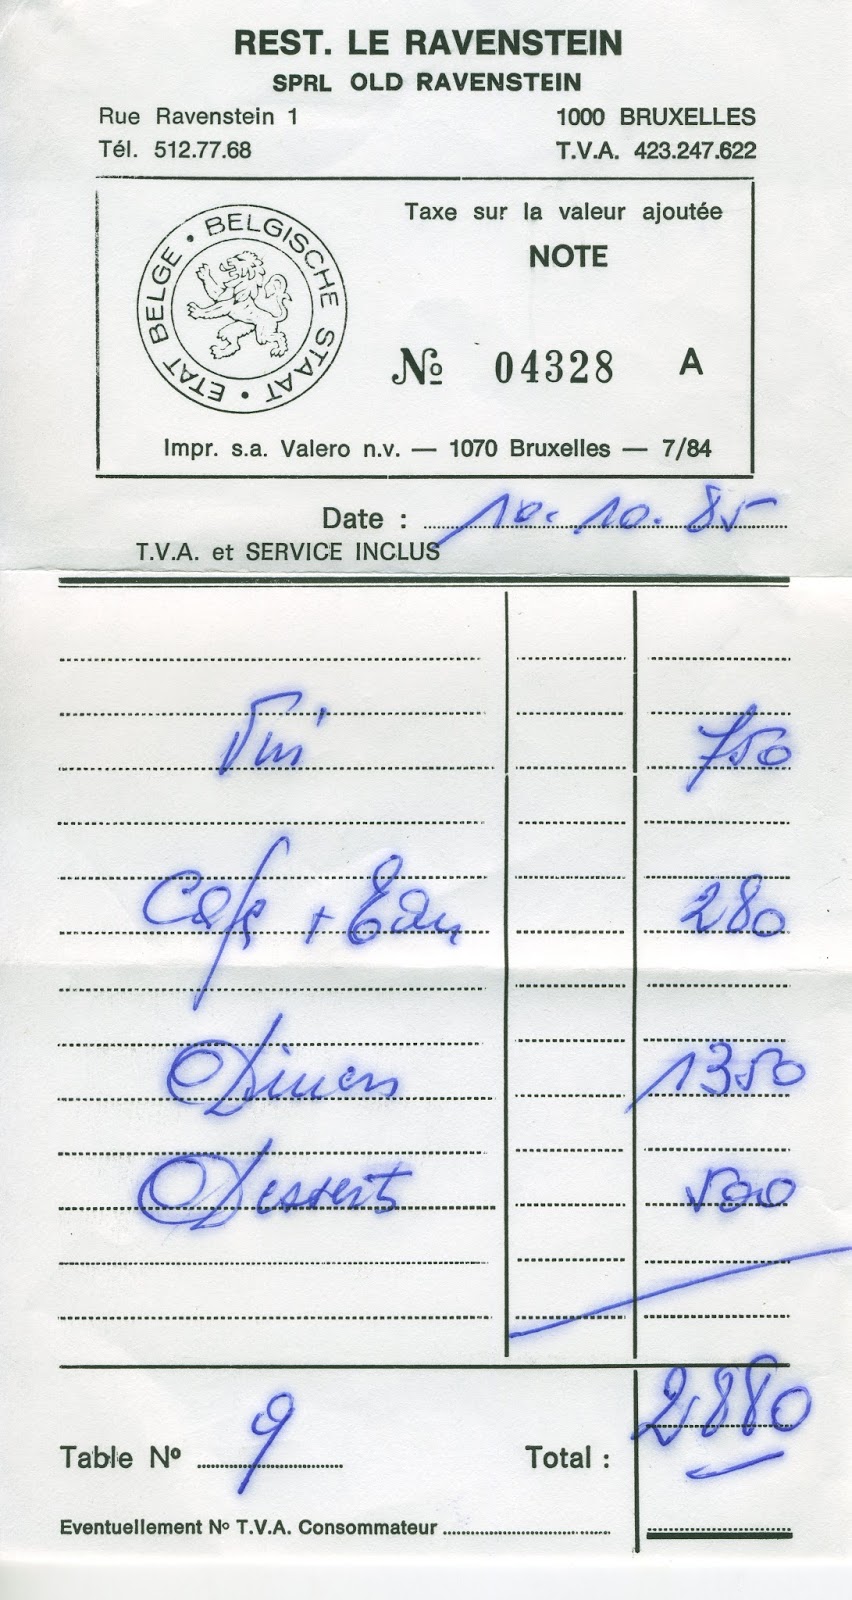 REST. LE RAVENSTEIN
SPRL OLD RAVENSTEIN
Rue Ravenstein 1 1000 BRUXELLES
Tél. 512.77.68 T.V.A. 423.247.622
ETAT BELGE • BELGISCHE STAAT •
Taxe sur la valeur ajoutée
NOTE
No 04328 A
Impr. s.a. Valero n.v. — 1070 Bruxelles — 7/84
Date : 10. 10. 85
T.V.A. et SERVICE INCLUS
Vin 750
Café + Eau 280
Diners 1350
Desserts 500
2880
Table No 9 Total :
Eventuellement No T.V.A. Consommateur